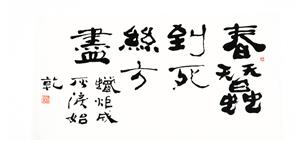 春蠶
到死
絲方
盡
蠟炬成
灰淚始
乾